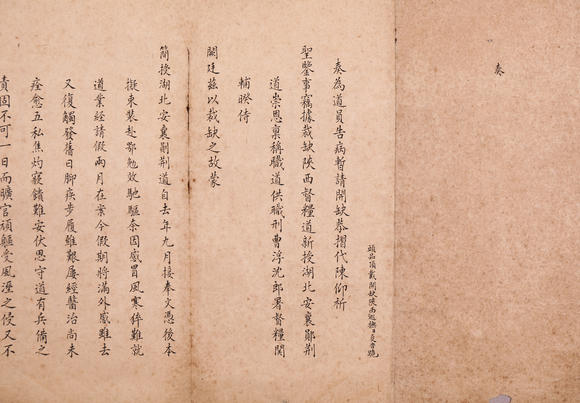 奏
頭品頂戴開缺陝西巡撫臣跪
奏為道員告病暫請開缺恭摺代陳仰祈
聖鑒事竊據裁缺陝西督糧道新授湖北安襄鄖荆
道崇恩稟稱職道供職刑曹浮沈郎署督糧關
輔睽侍
闕廷茲以裁缺之故蒙
簡授湖北安襄鄖荆道自去年九月接奉文憑後本
擬束裝赴鄂勉效馳驅奈因感冒風寒猝難就
道業經請假兩月在案今假期將滿外感雖去
又復觸發舊日脚疾步履維艱屢經醫治尚未
痊愈五私焦灼寢饋難安伏思守道有兵備之
責固不可一日而曠官頑軀受風溼之侵又不